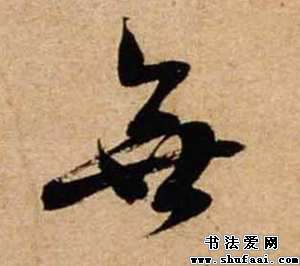 無
书法爱网
www.shufaai.com